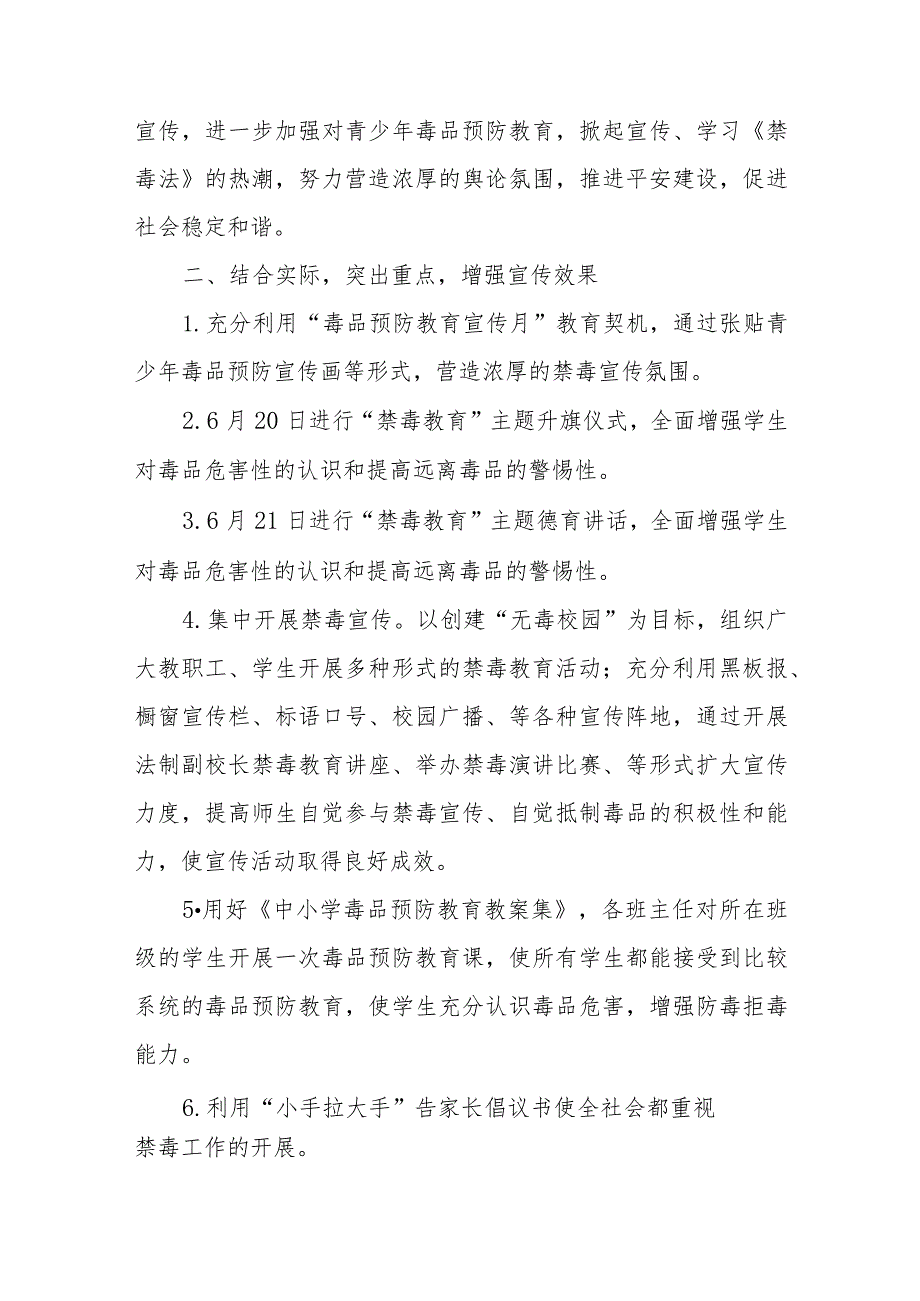 宣传，进一步加强对青少年毒品预防教育，掀起宣传、学习《禁
毒法》的热潮，努力营造浓厚的舆论氛围，推进平安建设，促进
社会稳定和谐。
二、结合实际，突出重点，增强宣传效果
1.充分利用“毒品预防教育宣传月”教育契机，通过张贴青
少年毒品预防宣传画等形式，营造浓厚的禁毒宣传氛围。
2.6 月 20 日进行“禁毒教育”主题升旗仪式，全面增强学生
对毒品危害性的认识和提高远离毒品的警惕性。
3.6 月 21 日进行“禁毒教育”主题德育讲话，全面增强学生
对毒品危害性的认识和提高远离毒品的警惕性。
4.集中开展禁毒宣传。以创建“无毒校园”为目标，组织广
大教职工、学生开展多种形式的禁毒教育活动；充分利用黑板报、
橱窗宣传栏、标语口号、校园广播、等各种宣传阵地，通过开展
法制副校长禁毒教育讲座、举办禁毒演讲比赛、等形式扩大宣传
力度，提高师生自觉参与禁毒宣传、自觉抵制毒品的积极性和能
力，使宣传活动取得良好成效。
5•用好《中小学毒品预防教育教案集》，各班主任对所在班
级的学生开展一次毒品预防教育课，使所有学生都能接受到比较
系统的毒品预防教育，使学生充分认识毒品危害，增强防毒拒毒
能力。
6.利用“小手拉大手”告家长倡议书使全社会都重视
禁毒工作的开展。